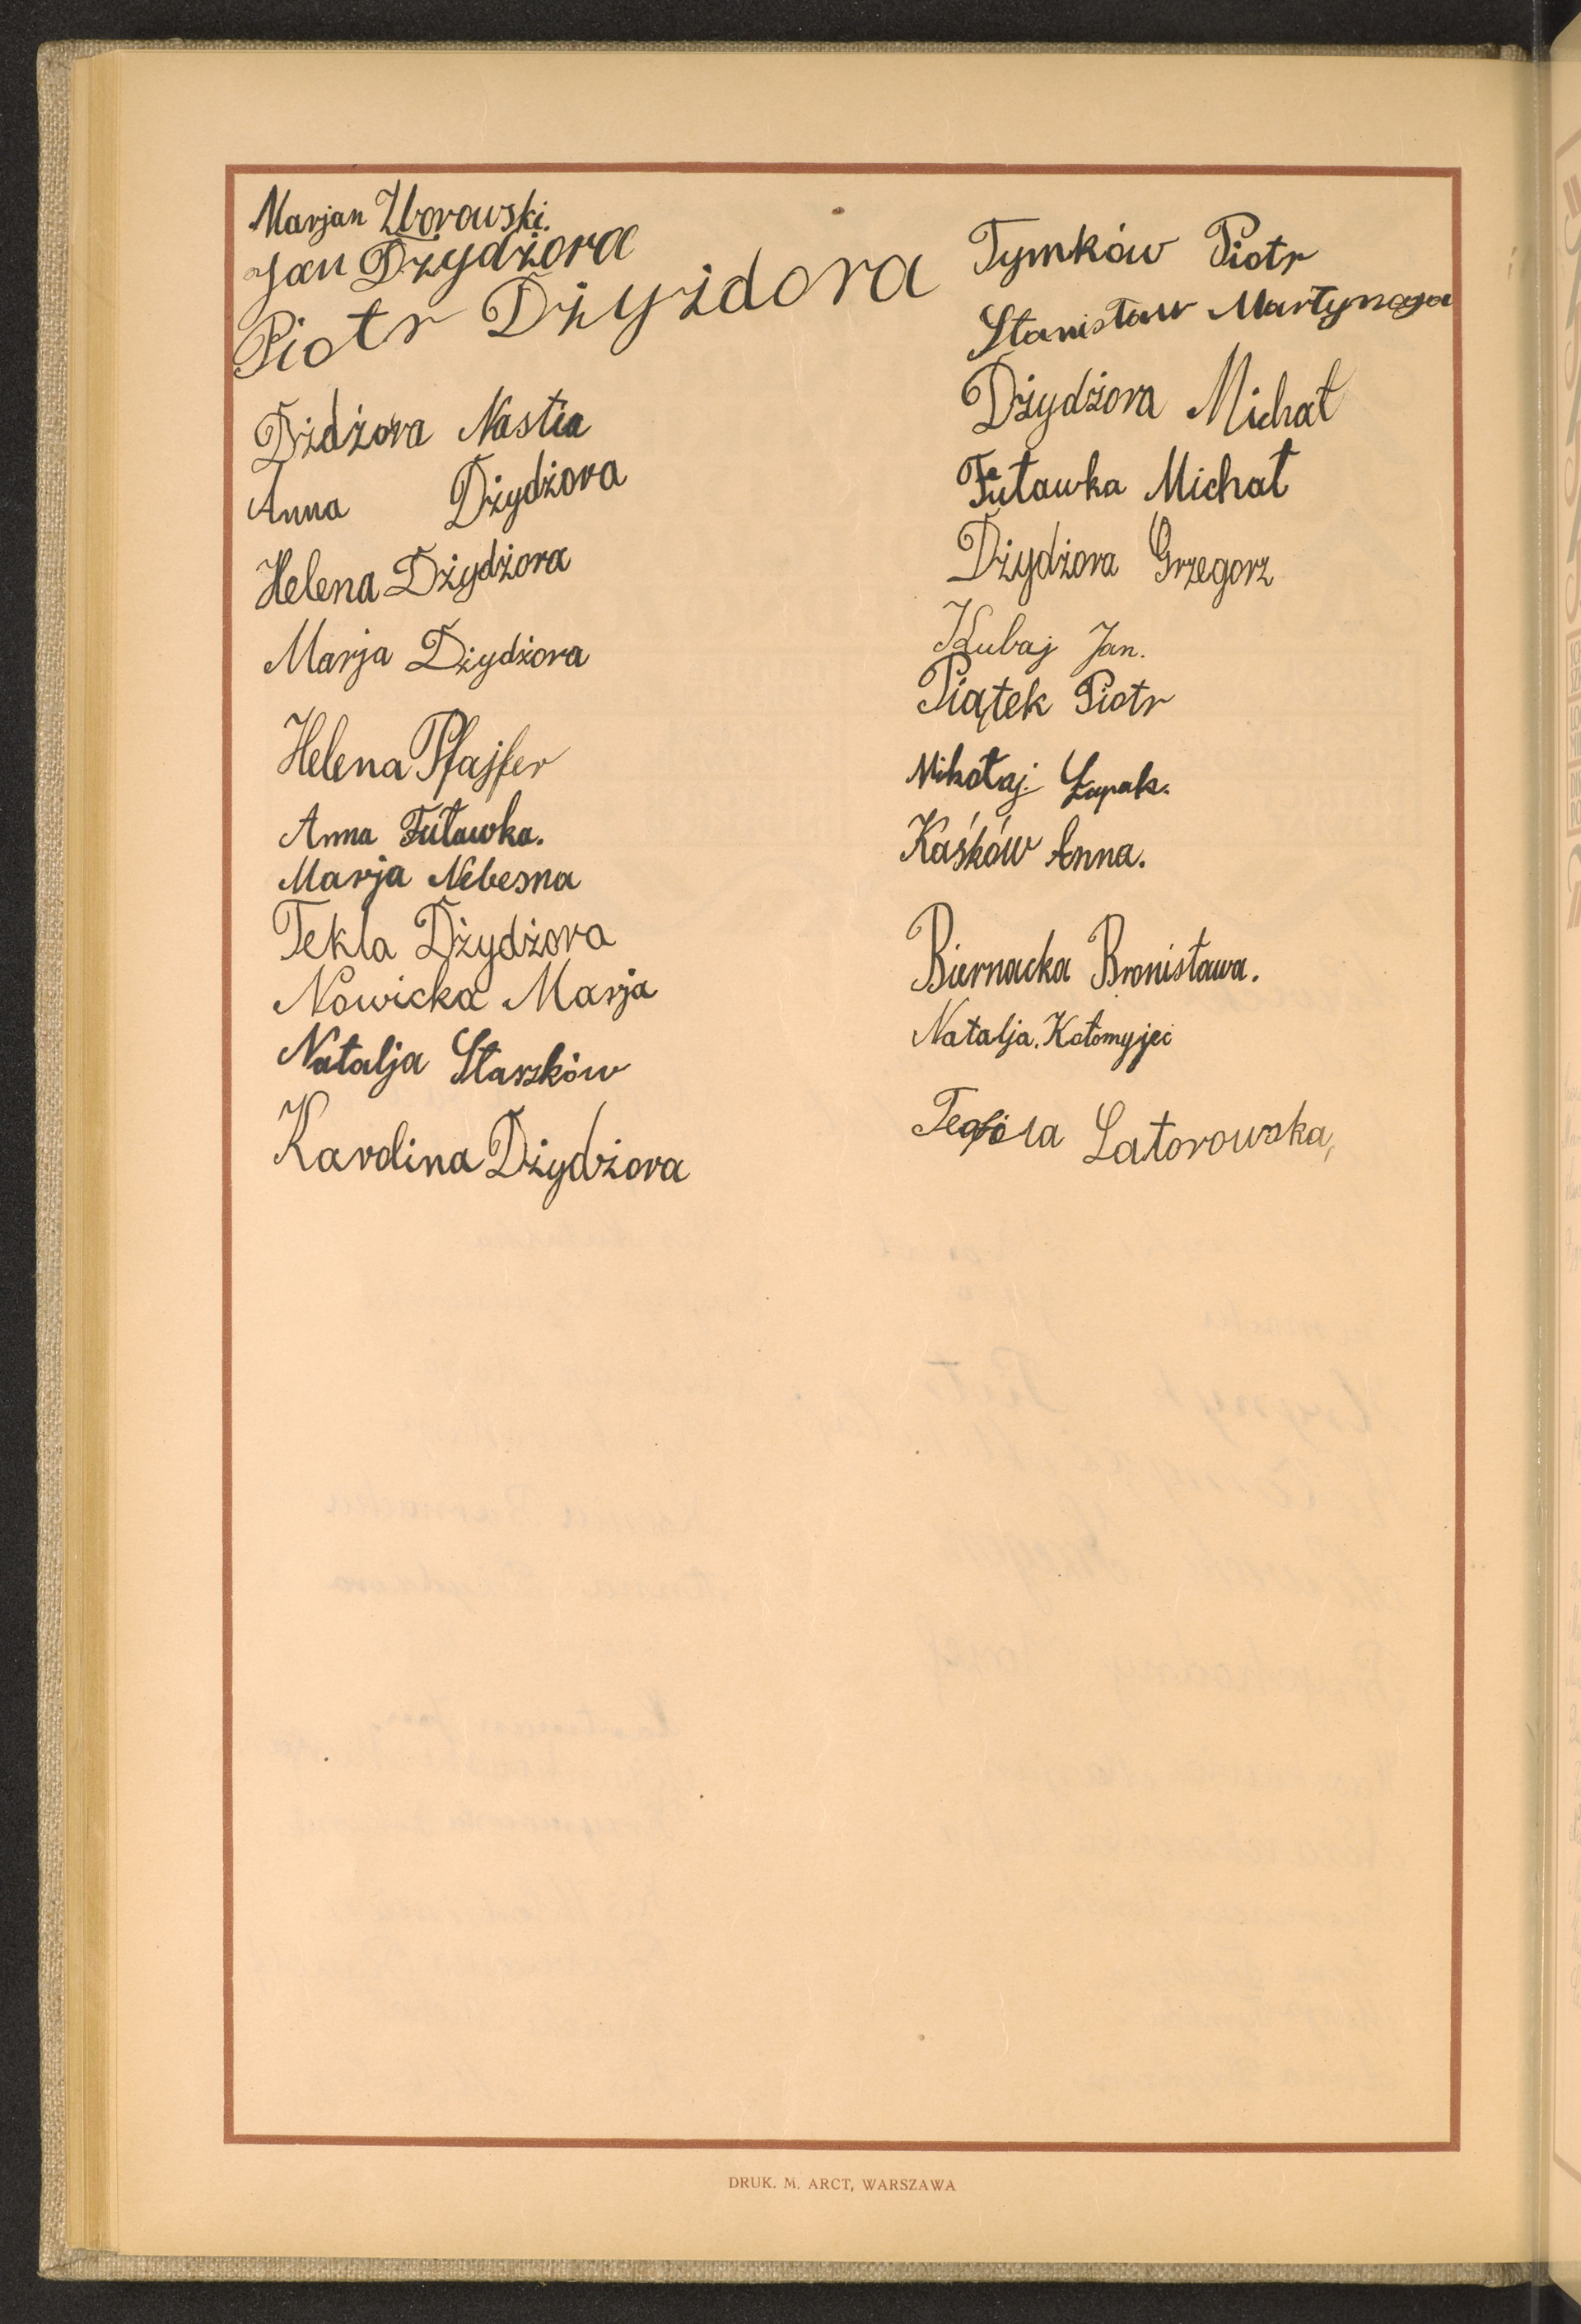 Marjan Uorowski.
Jan Dżydżora
Piotr Dżyżdora
Dżdżora Nastia
Anna Dżydżora
Helena Dżydżora
Marja Dżydżora
Helena Pfajfer
Anna Futawka.
Marja Nebesna
Tekla Dżydżora
Nowicka Marja
Natalja Staszków
Karolina Dżydżora
Tymków Piotr
Stanisław Martynoga
Dżydżora Michał
Futawka Michał
Dżydżora Grzegorz
Kubaj Jan.
Piątek Piotr
Mikołaj Łapak.
Kaśków Anna.
Biernacka Bronisława.
Natalja. Kołomyjec
Latorowska,
DRUK. M. ARCT, WARSZAWA